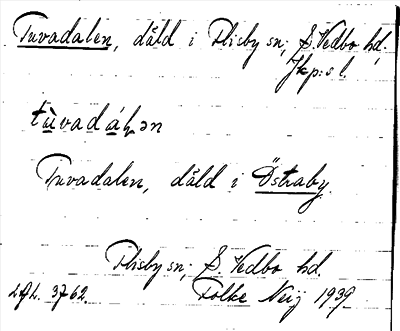 Tuvadalen, dåld i Flisby sn; S. Vedbo hd,
Jkp:s l.
tùvadáḷən
Tuvadalen, dåld i Östraby.
Flisby sn; S. Vedbo hd.
ULL. 3762. Folke Neij 1939